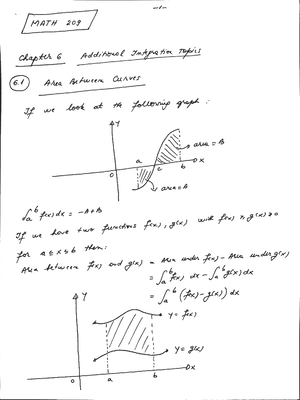 MATH 209
Chapter 6 Additional Integration Topics
6.1 Area Between Curves
If we look at the following graph :
y
area = B
a
c
b
x
0
area = A
∫ₐᵇ f(x) dx = -A+B
If we have two functions f(x), g(x) with f(x) ≥ g(x) ≥ 0
for a ≤ x ≤ b then:
Area between f(x) and g(x) = Area under f(x) - Area under g(x)
= ∫ₐᵇ f(x) dx - ∫ₐᵇ g(x) dx
= ∫ₐᵇ (f(x) - g(x)) dx
y
y = f(x)
y = g(x)
0
a
b
x